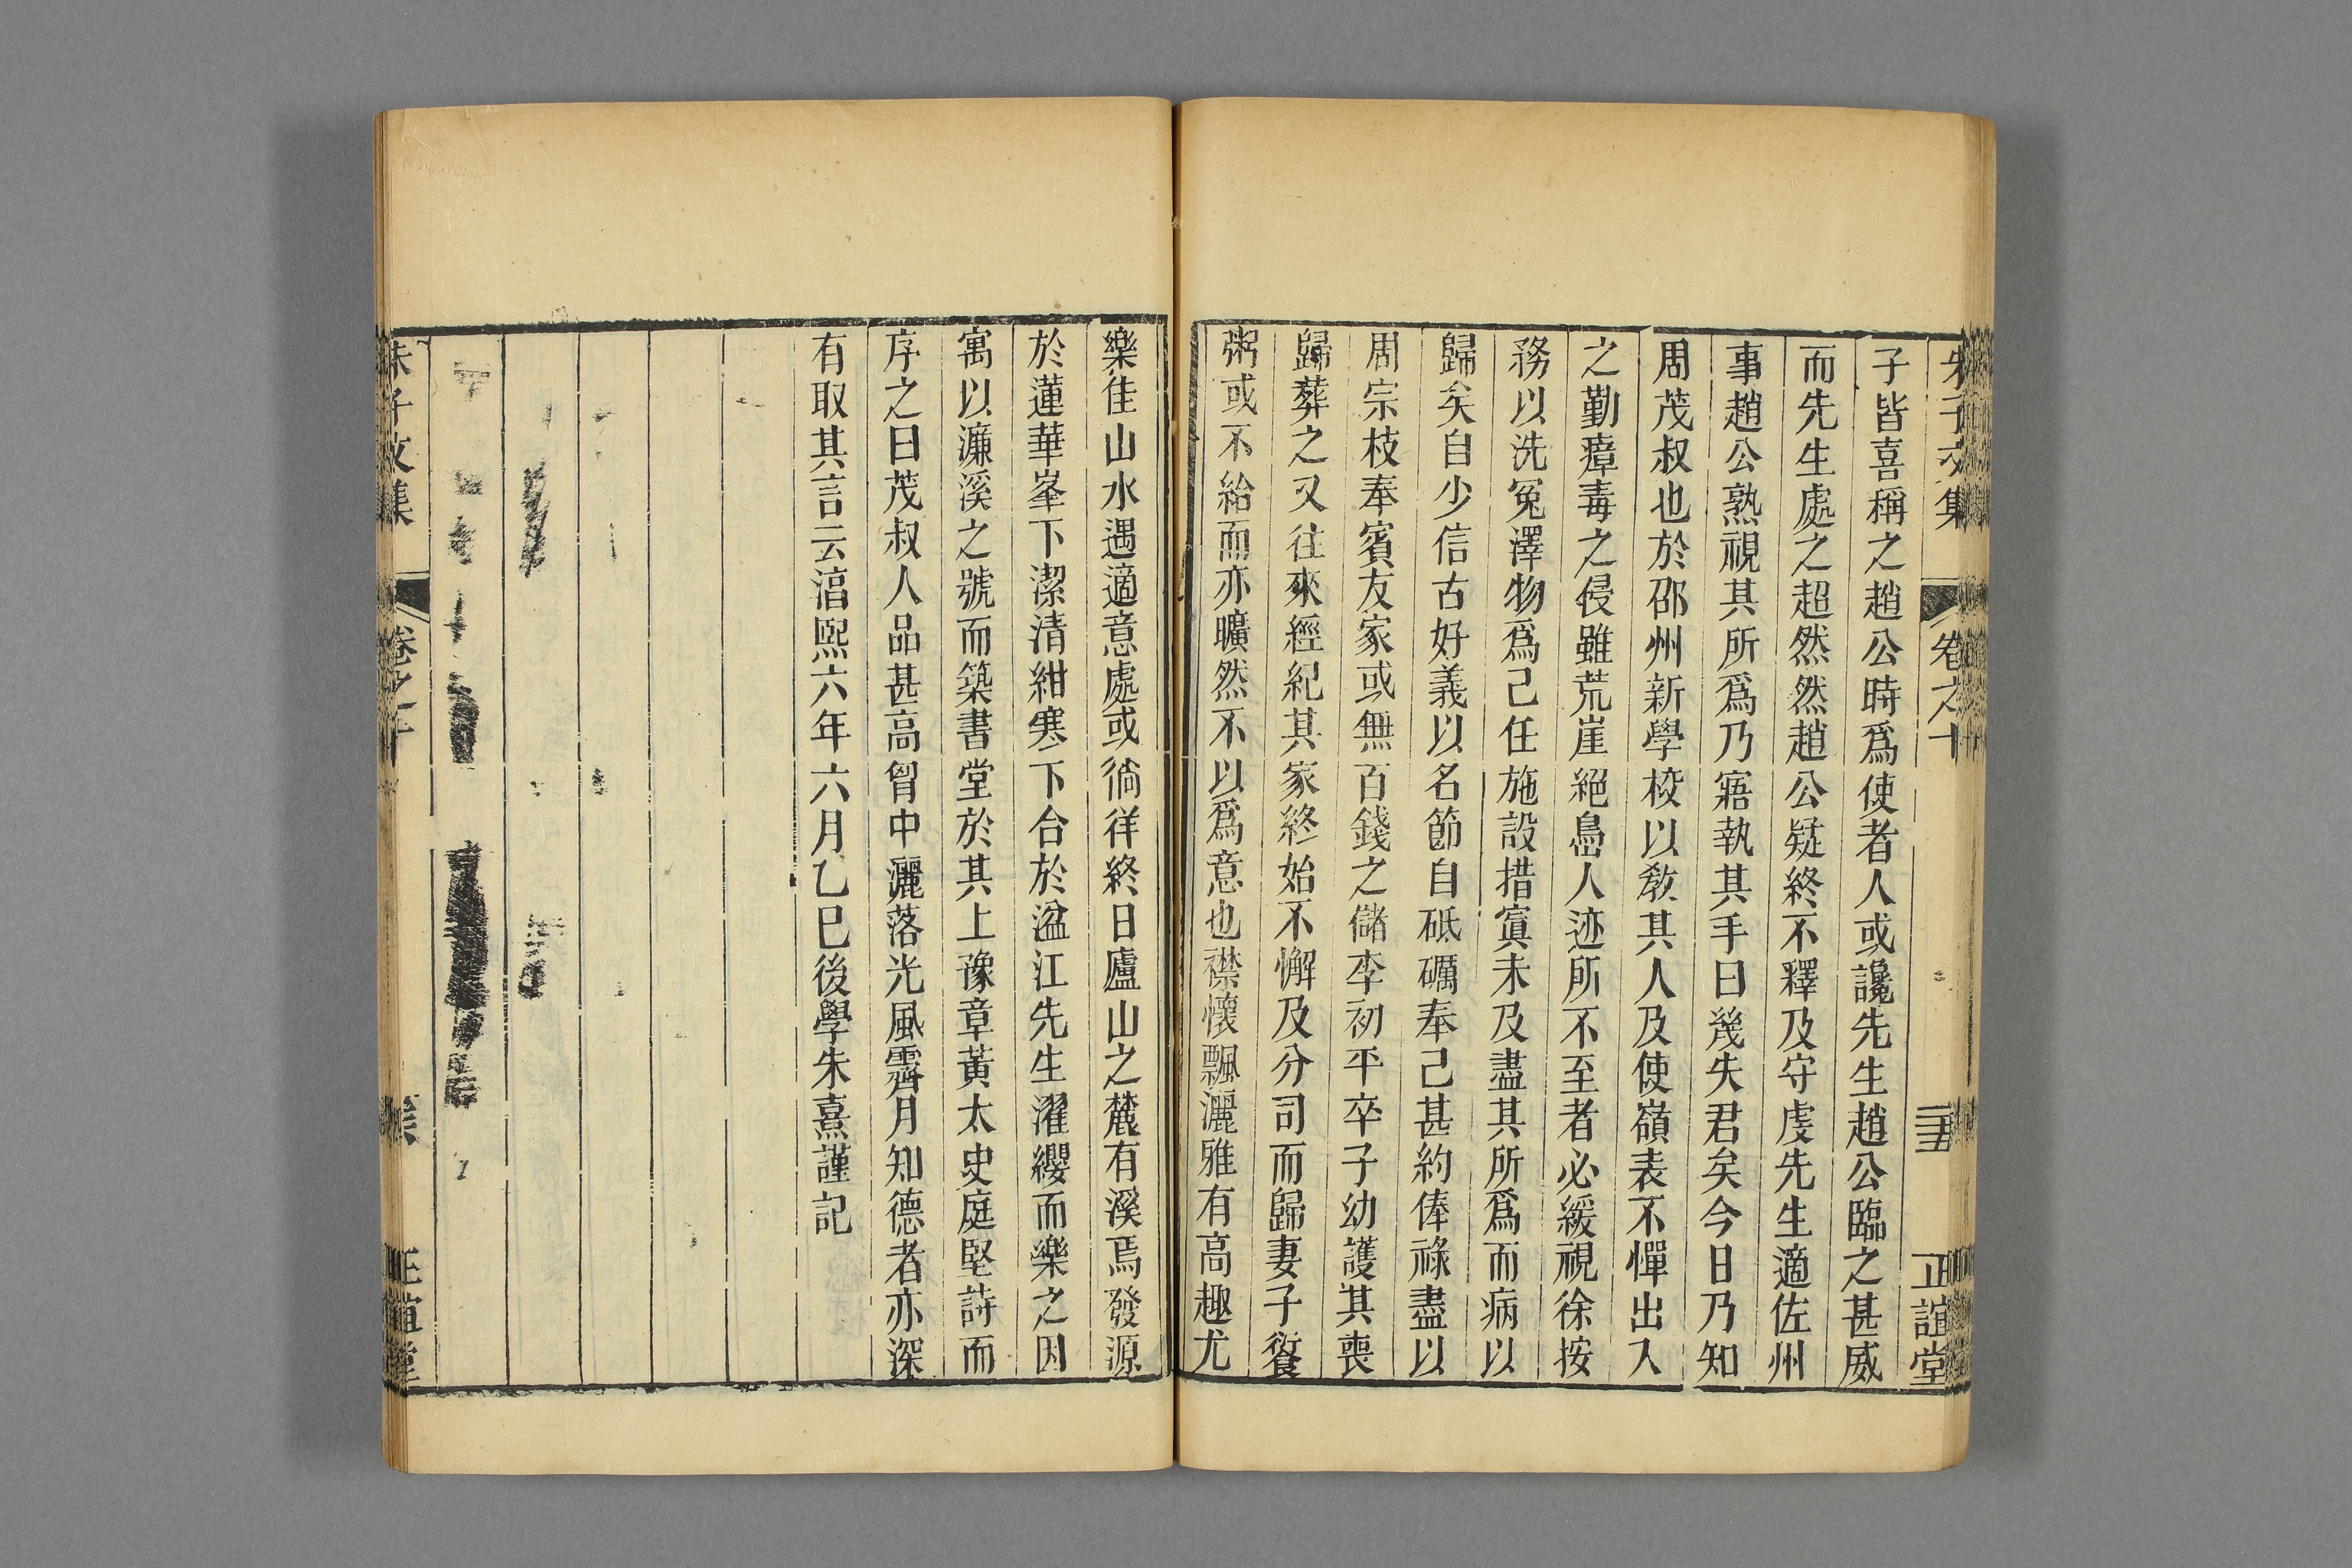 朱子文集
卷之十
三五
正誼堂
子皆喜稱之趙公時爲使者人或讒先生趙公臨之甚威
而先生處之超然然趙公疑終不釋及守虔先生適佐州
事趙公熟視其所爲乃寤執其手曰幾失君矣今日乃知
周茂叔也於邵州新學校以敎其人及使嶺表不憚出入
之勤瘴毒之侵雖荒崖絕島人迹所不至者必緩視徐按
務以洗冤澤物爲己任施設措寘未及盡其所爲而病以
歸矣自少信古好義以名節自砥礪奉己甚約俸祿盡以
周宗枝奉賓友家或無百錢之儲李初平卒子幼護其喪
歸葬之又往來經紀其家終始不懈及分司而歸妻子餐
粥或不給而亦曠然不以爲意也襟懷飄灑雅有高趣尤
樂佳山水遇適意處或徜徉終日廬山之麓有溪焉發源
於蓮華峯下潔清紺寒下合於湓江先生濯纓而樂之因
寓以濂溪之號而築書堂於其上豫章黃太史庭堅詩而
序之曰茂叔人品甚高胷中灑落光風霽月知德者亦深
有取其言云淳熙六年六月乙巳後學朱熹謹記
朱子文集
卷之十
正誼堂